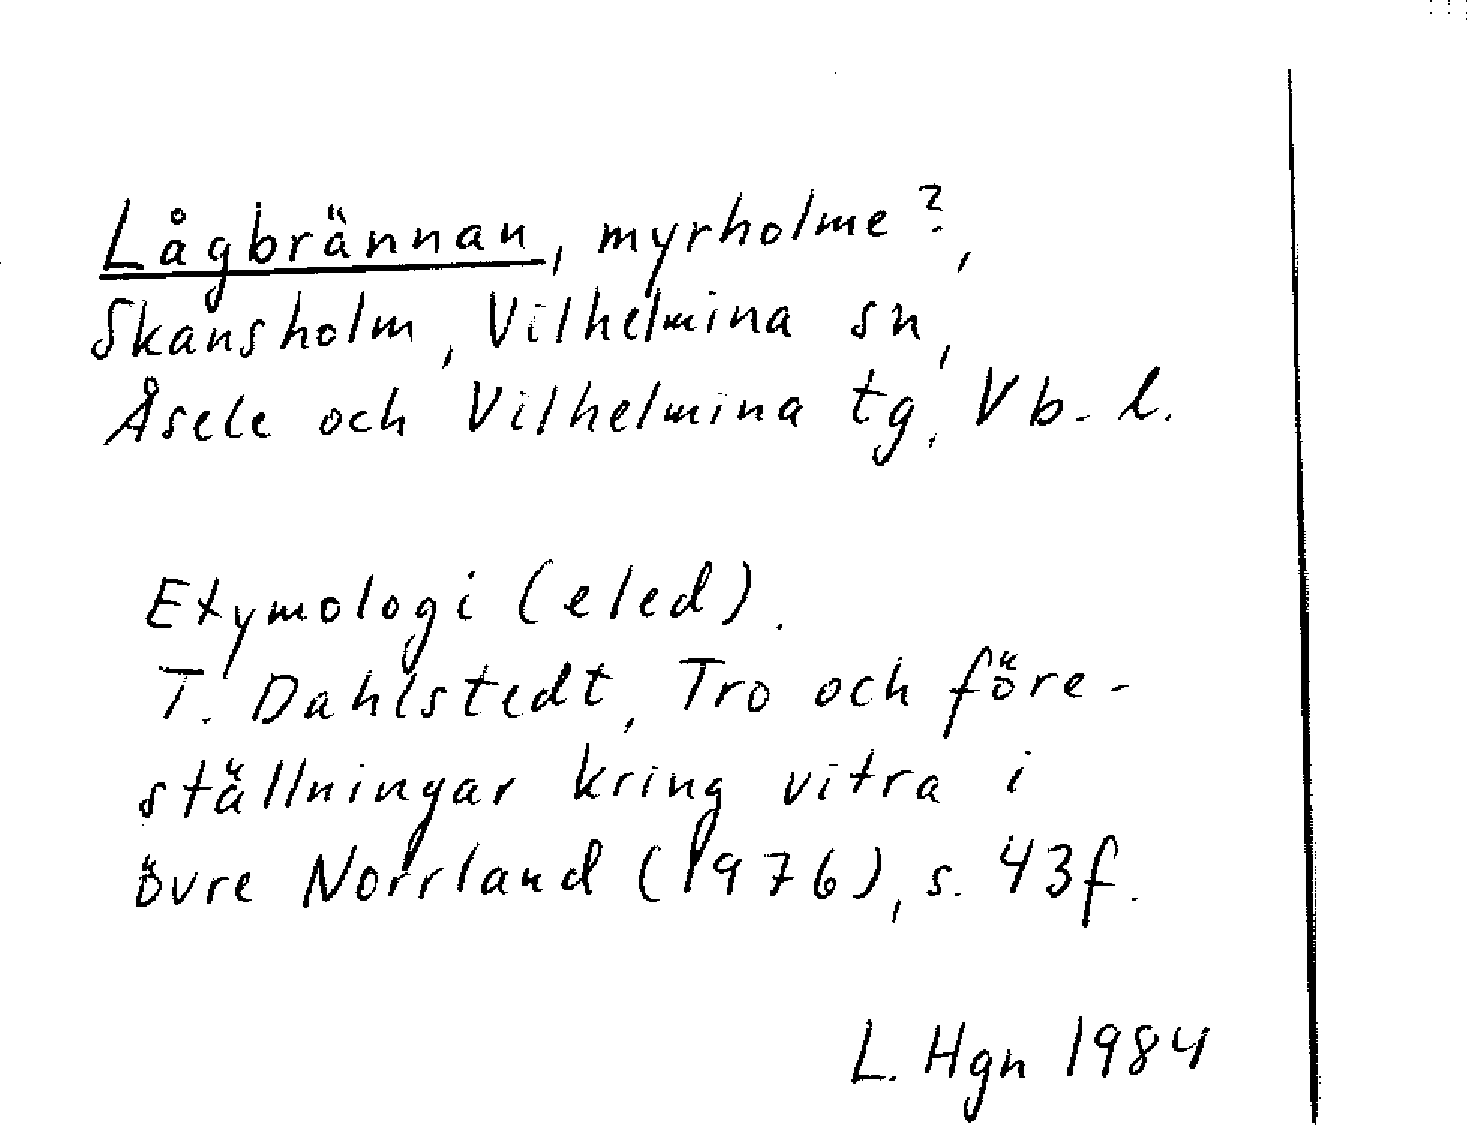 Lågbrännan, myrholme?,
Skansholm, Vilhelmina sn,
Åsele och Vilhelmina tg, Vb. l.
Etymologi (eled).
T. Dahlstedt, Tro och före-
ställningar kring vitra i
övre Norrland (1976), s. 43f.
L. Hgn 1984